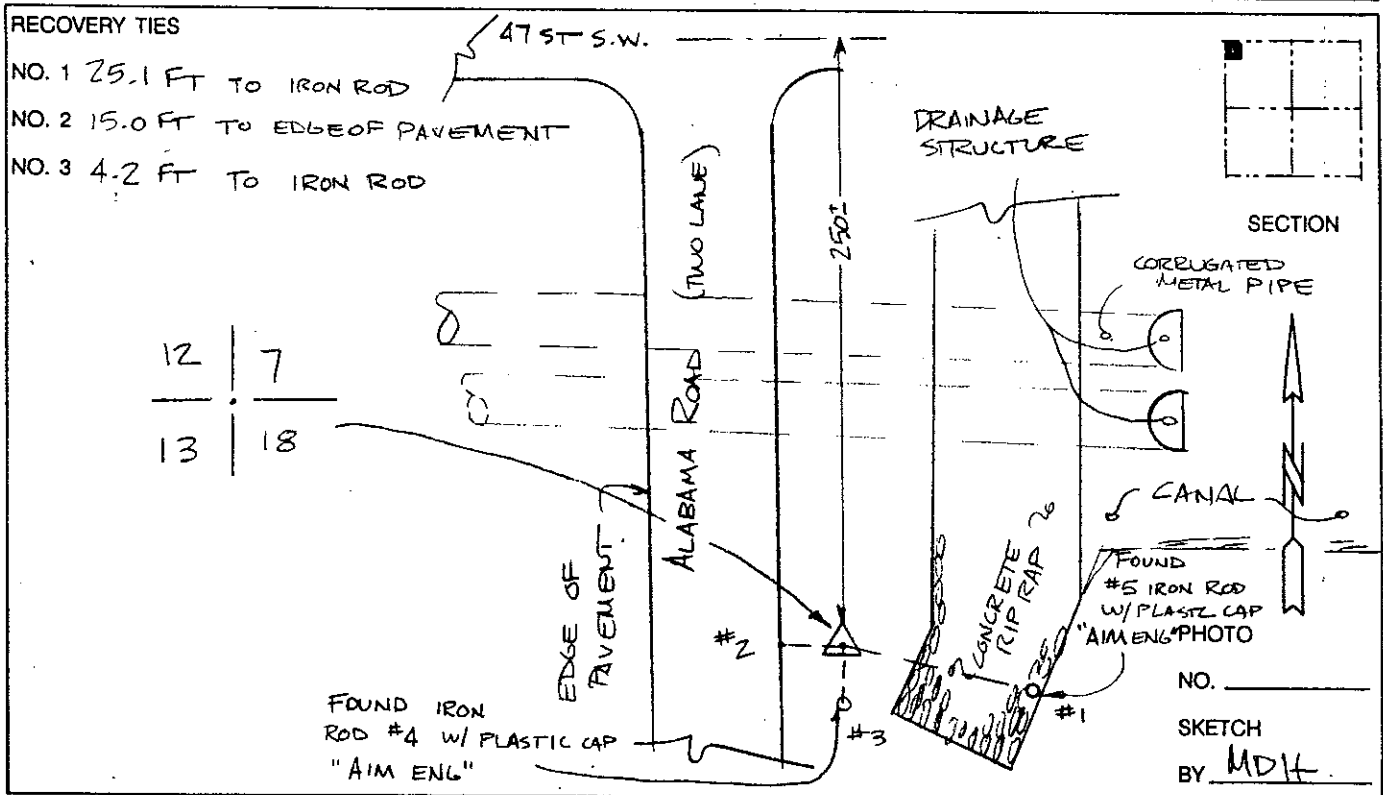 RECOVERY TIES
NO. 1 25.1 FT TO IRON ROD
NO. 2 15.0 FT TO EDGE OF PAVEMENT
NO. 3 4.2 FT TO IRON ROD
47 ST S.W.
250±
(TWO LANE)
ALABAMA ROAD
DRAINAGE
STRUCTURE
SECTION
CORRUGATED
METAL PIPE
12 7
13 18
EDGE OF
PAVEMENT
CANAL
CONCRETE
RIP RAP
FOUND
#5 IRON ROD
W/ PLASTC CAP
"AIM ENG"
PHOTO
NO.
#2
#1
#3
N
FOUND IRON
ROD #4 W/ PLASTIC CAP
"AIM ENG"
SKETCH
BY MDH